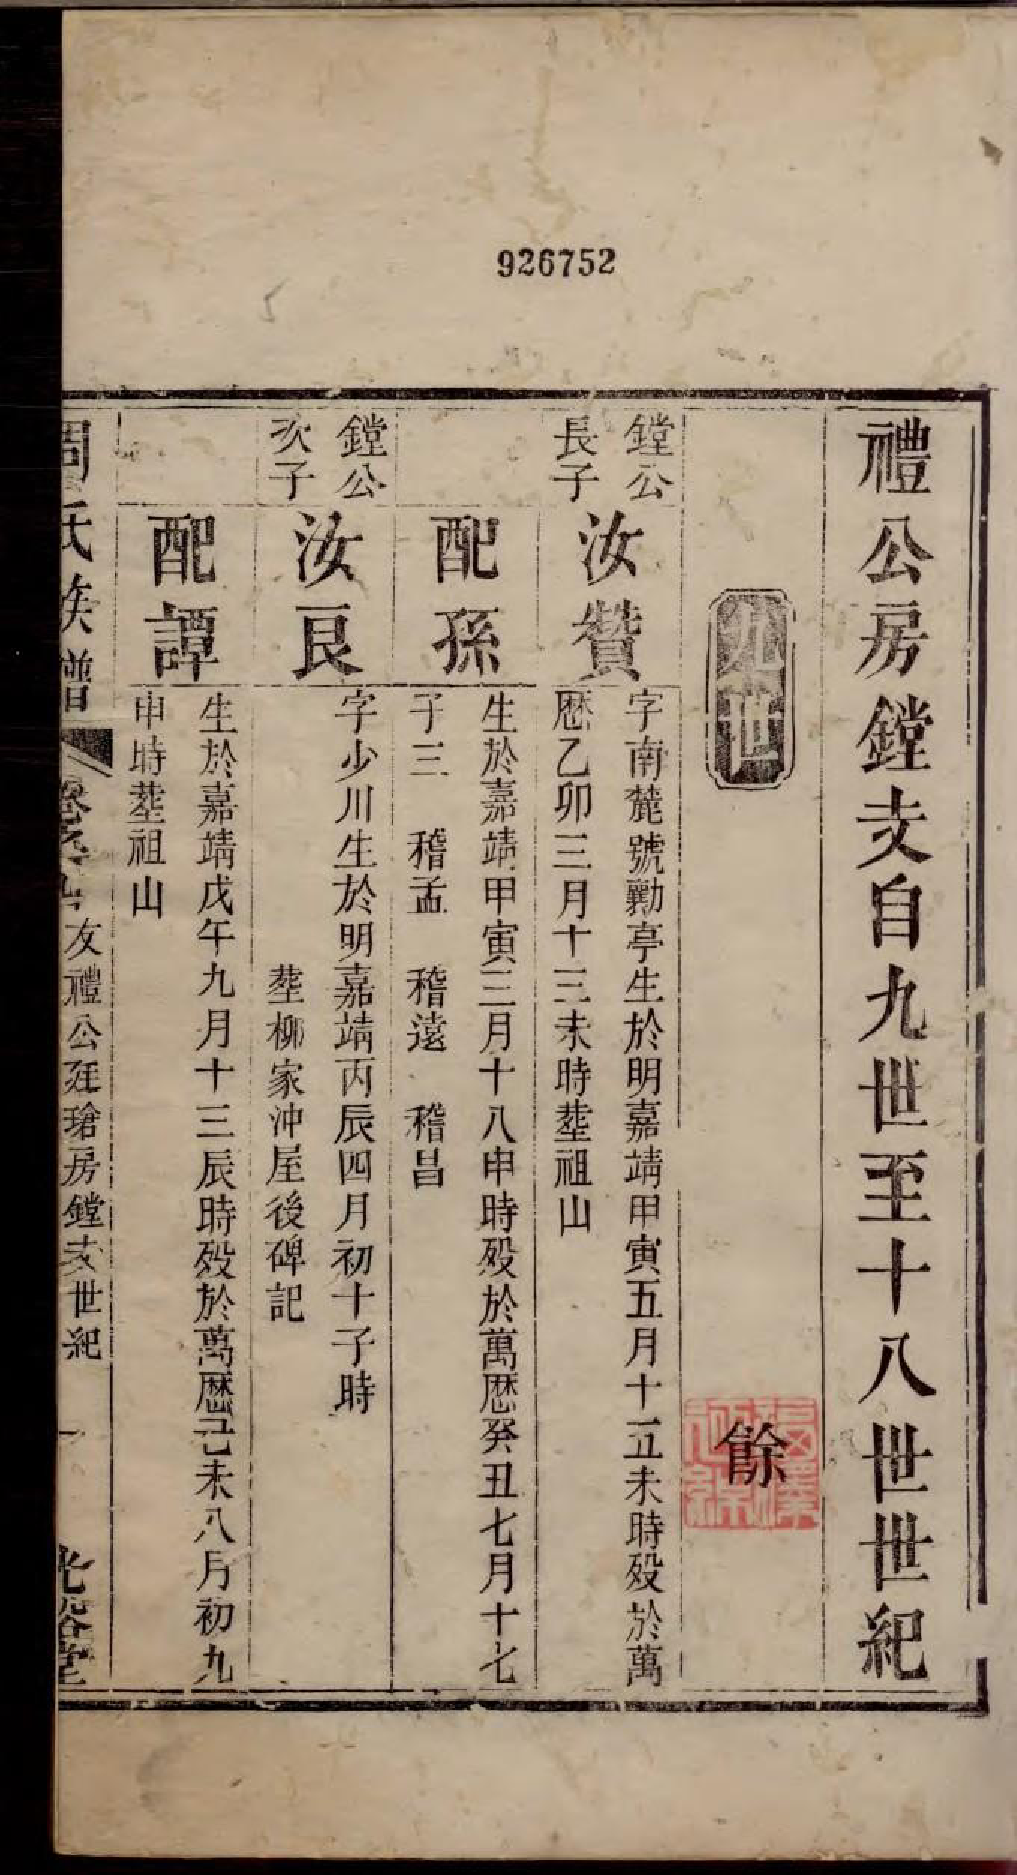 926752
禮公房鏜支自九世至十八世世紀
九世
餘
鏜公
長子
汝贊
字南麓號勷亭生於明嘉靖甲寅五月十五未時殁於萬
曆乙卯三月十三未時塟祖山
配孫
生於嘉靖甲寅三月十八申時殁於萬曆癸丑七月十七
子三 稽孟 稽遠 稽昌
鏜公
次子
汝艮
字少川生於明嘉靖丙辰四月初十子時
塟柳家沖屋後碑記
配譚
生於嘉靖戊午九月十三辰時殁於萬曆己未八月初九
申時塟祖山
周氏族譜
友禮公廷瑲房鏜支世紀
一
光裕堂